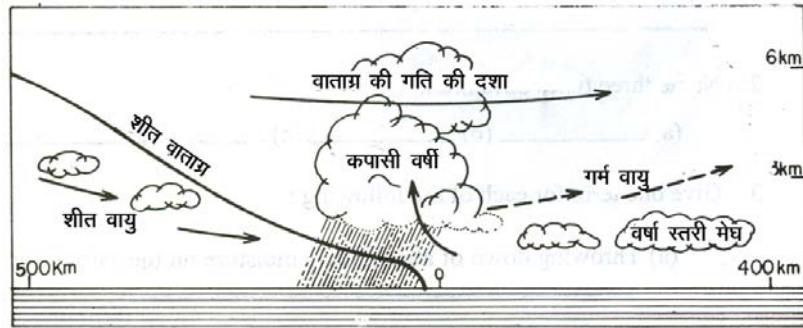 6 km
वाताग्र की गति की दशा
शीत वाताग्र
कपासी वर्षी
गर्म वायु
3km
शीत वायु
वर्षा स्तरी मेघ
500Km
0
400 Km